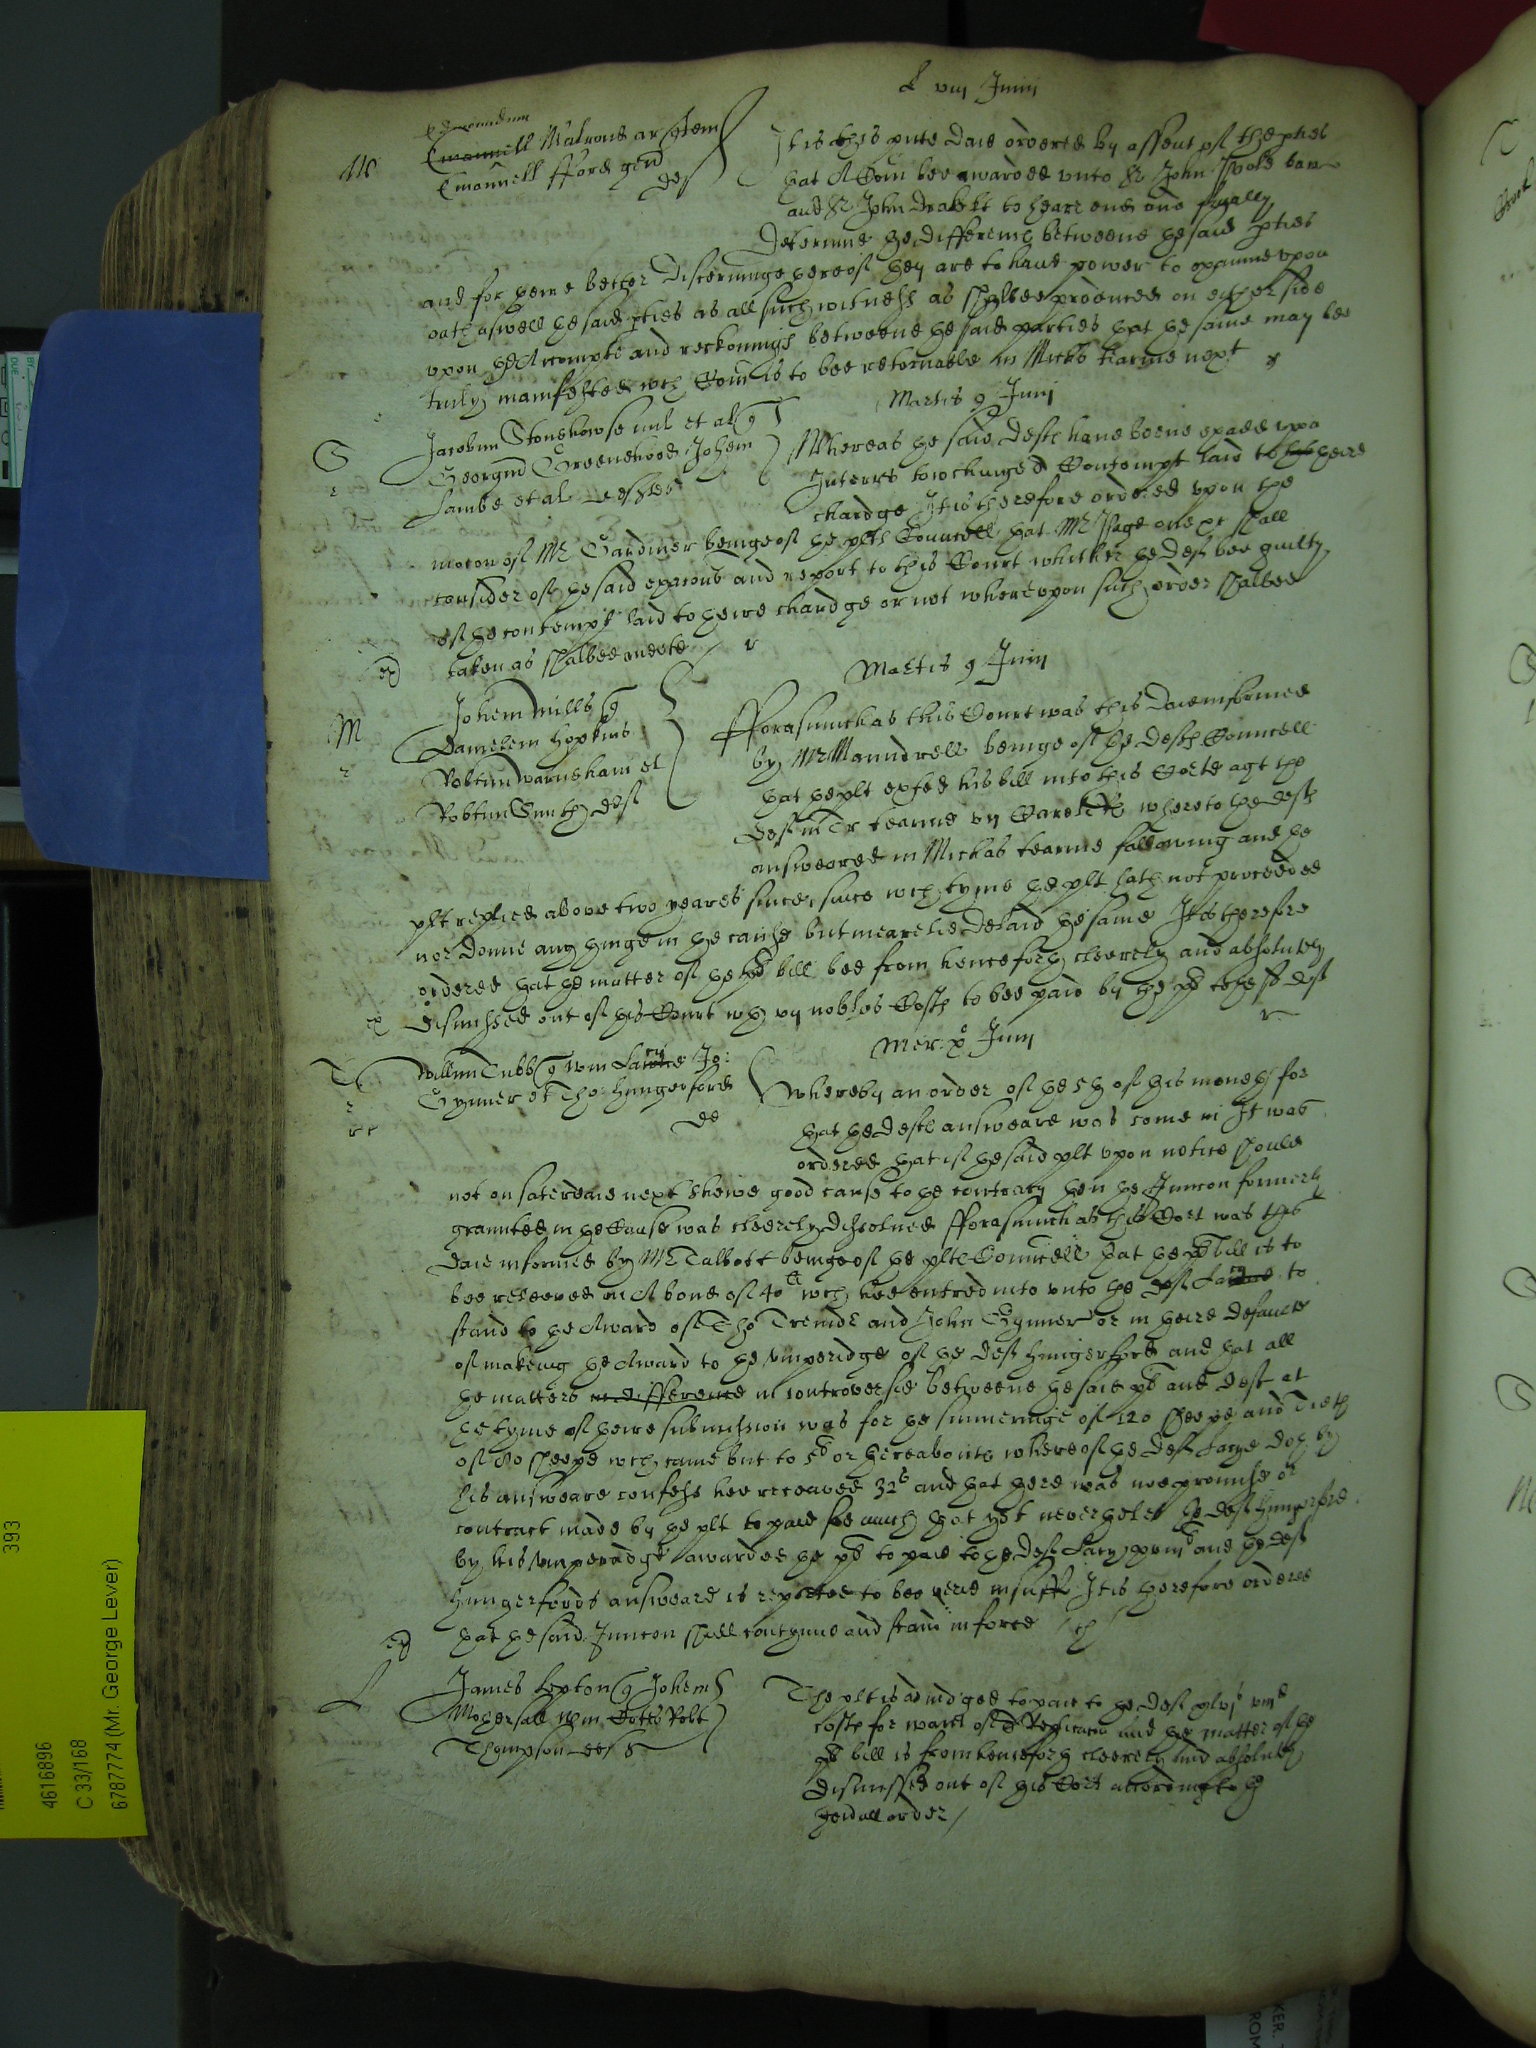 L viij Junij
M
Edmundum
Emanuell Matrone ar quem
Emanuell fford gen
def
It is this pnte daie ordered by assent of the pties
that A Com bee awarded vnto Sr John Poole bar
and Sr John Drake kt to heare end and finally
determine the differenc betweene the said pties
and for theire better discerninge thereof they are to haue power to examine vpon
oath aswell the said pties as all such witnesss as shalbee produced on either side
vpon the Accompte and reckonings betweene the said parties that the same may bee
truly manifested wch Com is to bee retornable in Michs tearme next
Martis 9 Junij
G
Jacobum Stonehowse mil et al q
Georgm Greenewood Johem
Lambe et al deftes
Whereas the said defte haue beene exaed vpo
Interrs towchinge a Contempt laid to theire
chardge It is therefore ordered vpon the
mocon of Mr Gardiner beinge of the plts Councell that Mr Page one xc shall
consider of the said exacons and report to this Court whither the def bee guilty
of the contempt laid to theire chardge or not wherevpon such order shalbee
taken as shalbee meete
ex
Martis 9 Junij
M
Johem Mills q
Danielem Hopkins
Robtum Warneham et
Robtum Smith def
fforasmuch as this Court was this daie informed
by Mr Maundrell beinge of the defte Councell
that the plt exhed his bill into this Corte agt the
def in Tr tearme vij Caroli whereto the defte
answeared in Michas tearme following and the
plt replied aboue two yeares since, since wch tyme the plt hath not proceeded
nor donne any thinge in the cause but mearelie delaid the same It is therefore
ordered that the matter of the sd bill bee from henceforth cleerely and absolutely
dismissed out of this Court wth vij nobles Coste to bee paid by the pt to the sd deft
ex
Mer. x Junij
T
Willm Tubb q Wm Lacye Jo:
Gynner et Tho: Hungerford
de
Whereby an order of the 5th of this moneth for
that the defte answeare was come in It was
ordered that if the said plt vpon notice should
not on saterdaie next shewe good cause to the contrary then the Iniuncon formerly
graunted in the Cause was cleerely dissolued fforasmuch as this Cort was this
daie informed by Mr Talbott beinge of the plte Councell that the sd bill is to
bee releeved in A bond of 40 wch hee entred into vnto the def Lacye to
stand to the Award of Tho and John Gynner or in theire defaulte
of makeing the Award to the vmperidge of the def Hungerford and that all
the matters in difference in controversie betweene the said pt and deft at
the tyme of theire submission was for the sumeringe of 120 sheepe and Tieth
of 80 sheepe wch came but to 5 or thereaboute whereof the deft Lacye doth by
his answeare confess hee receaued 32s and that there was noe promise or
contract made by the plt to paie soe much that yet neverthelesse the deft Hungerford
by his vmperidge awarded the pt to paie to the deft Lacy and the deft
Hungerfords answeare is reported to bee verie insuff It is therefore ordered
that the said Iniuncon shall contynue and stand in force
ex
L
James Lepton q Johem
Mothersall Wm Robt
Thompson defts
The plt is adiudged to paie to the def xlvjs viijd
coste for want of A Replicacon and the matter of the
sd bill is from henceforth cleerely and absolutely
dismissed out of this Cort accordinge to the
genall order
393
4616896
C 33/168
6787774 (Mr. George Lever)